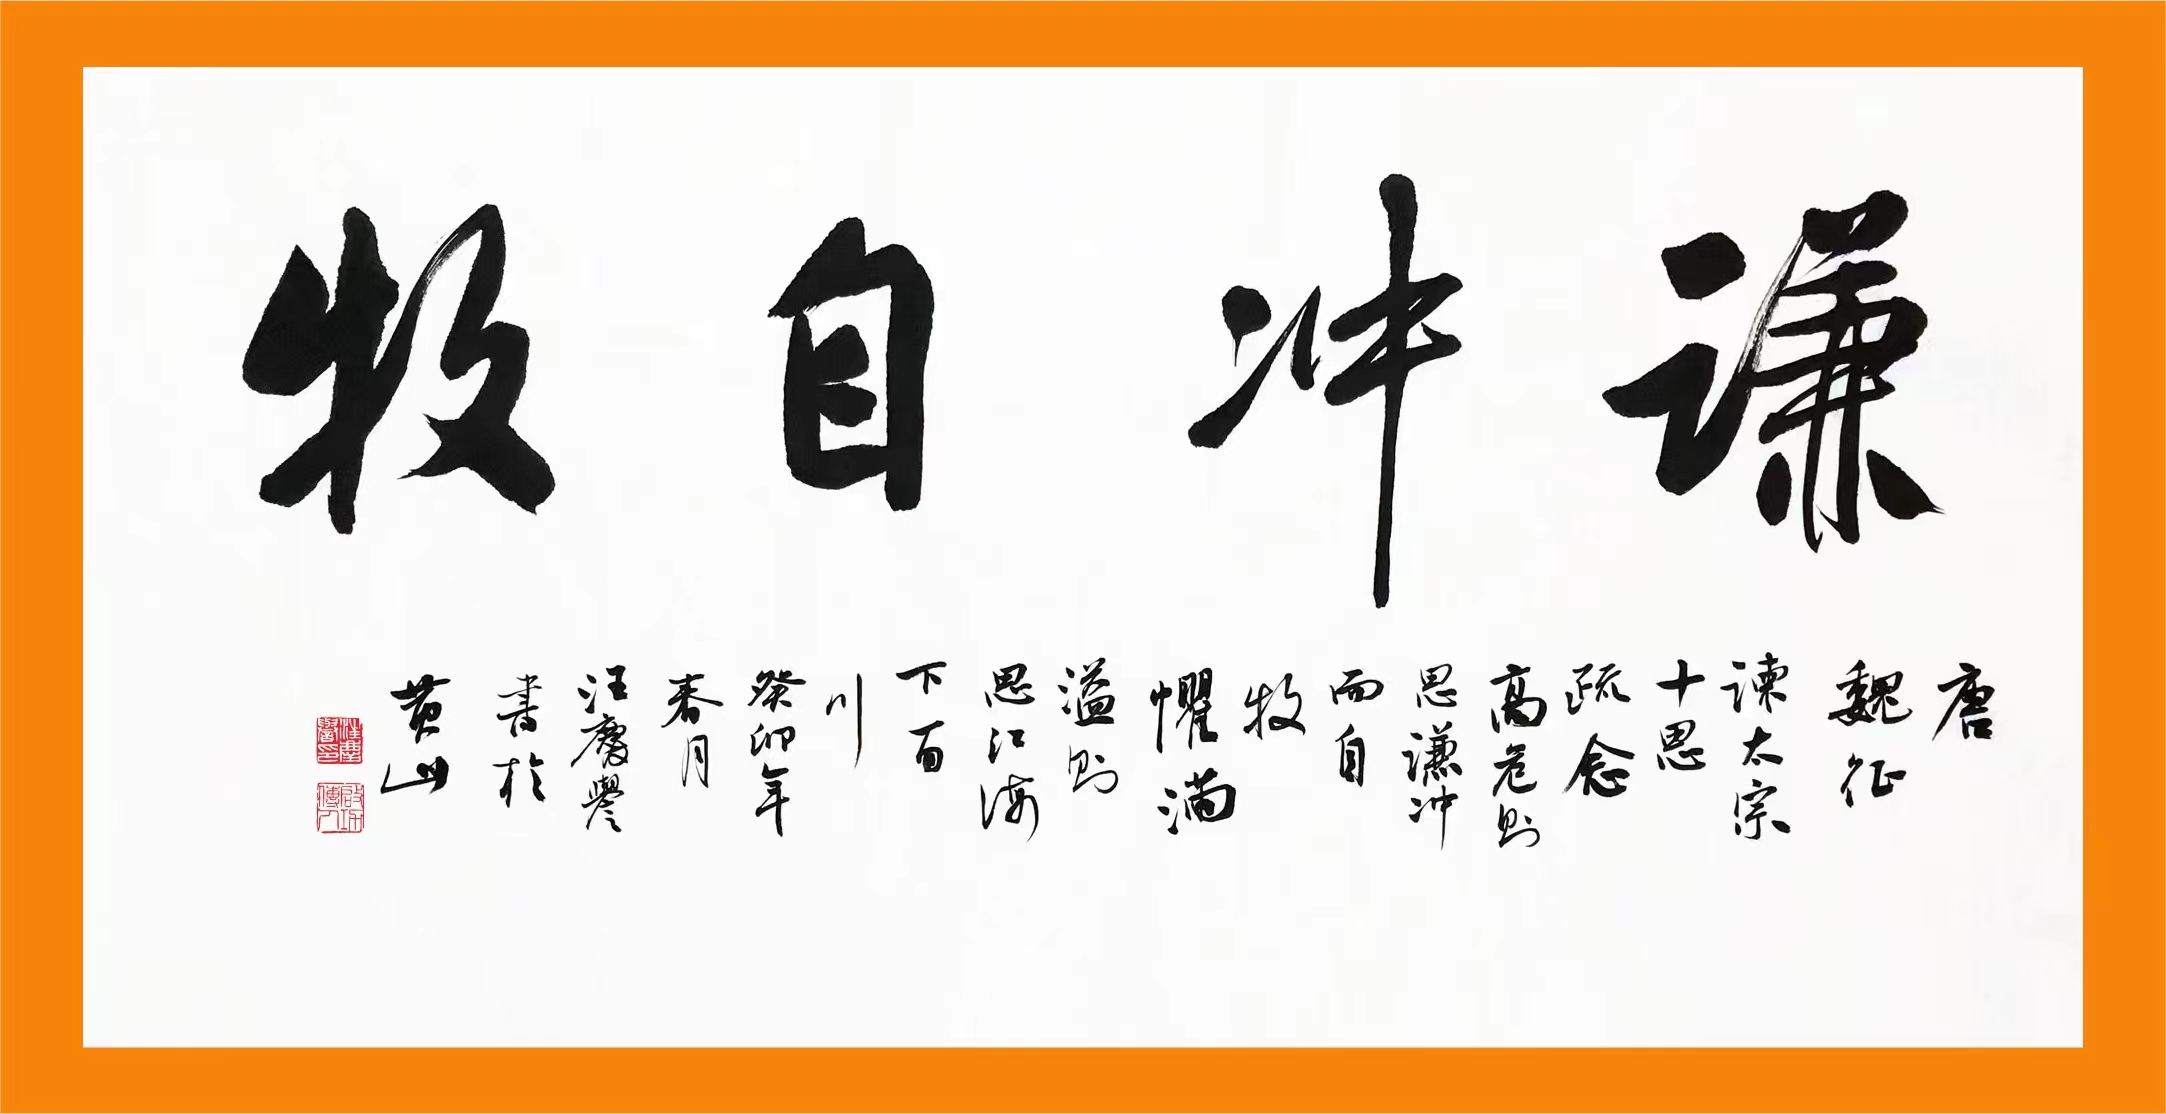 谦冲自牧
唐
魏征
谏太宗
十思
疏念
高危则
思谦冲
而自
牧
惧满
溢则
思江海
下百
川
癸卯年
春月
汪庆誉
书於
黄山